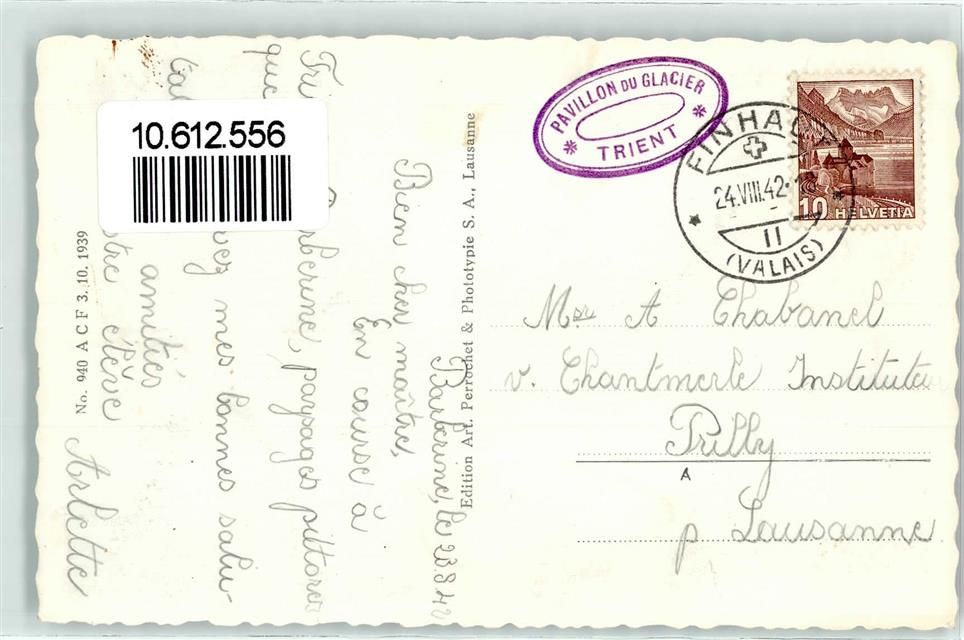 10.612.556
PAVILLON DU GLACIER
TRIENT
FINHAUT
24.VIII.42
II
(VALAIS)
10 HELVETIA
Barberine, le 23.8.42
Bien cher maître,
En course à
Barberine, paysages pittores
que
mes bonnes salu
amitiés
élève
Arlette
No. 940 A C F 3. 10. 1939
Edition Art. Perrochet & Phototypie S. A., Lausanne
Msr A Chabanel
v. Chantmerle Instituteur
Prilly
A
p Lausanne